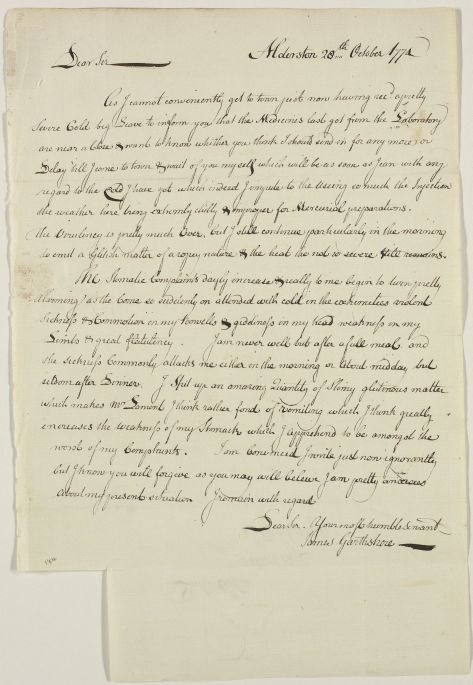 Dear Sir
Alderston 28th October 1772
As I cannot conveniently get to town just now having recd a pretty
severe Cold beg Leave to inform you that the Medicines last got from the Laboratory
are near a Close & want to know whither you think I should send in for any more or
Delay 'till I come to town & wait of you my self which will be as soon as I can with any
regard to the Cold I have got which indeed I impute to the useing so much the Injection
the weather here being extremly chilly & improper for Mercurial preparations.
the Virulency is pretty much Over, but I still continue particularly in the morning
to emit a Gleetish matter of a ropey nature & the heat tho not so severe still remains.
My Stomatic Complaints dayly increase & really to me begin to turn pretty
allarming as the Come so suddenly on attended with cold in the extremities violent
Sickness & Commotion in my Bowells & giddiness in my head weakness in my
Limbs & great flatulency. I am never well but after a full meal and
the sickness Commonly attacks me either in the morning or about midday but
seldom after Dinner. I Spit up an amazing Quantity of Slimy glutinous matter
which makes Mr Lamont I think rather fond of vomiting which I think greatly
encreases the weakness of my Stomach which I apprehend to be amongst the
worst of my Complaints. I am Convinced I write just now ignorantly
but I know you will forgive as you may will beleive I am pretty anxious
about my present situation I remain with regard
Dear Sir. Your most humble Servant
James Gartshore